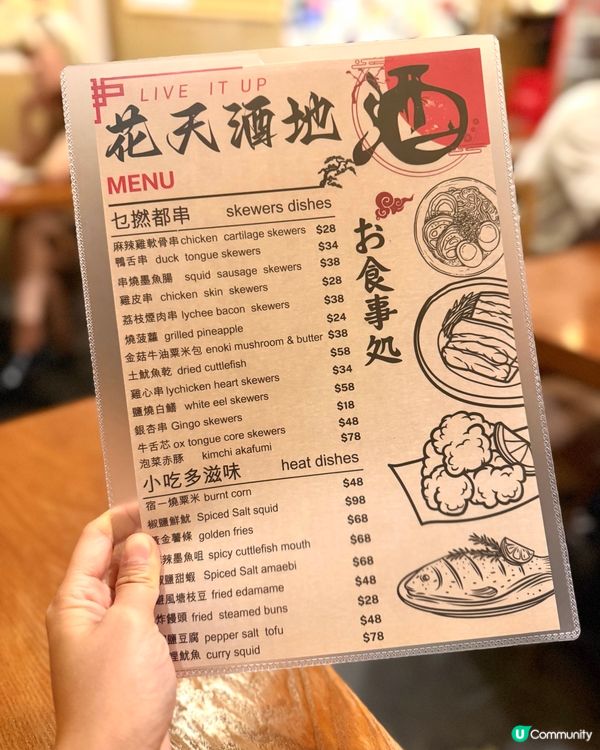 LIVE IT UP
花天酒地
酒
MENU
乜撚都串 skewers dishes
麻辣雞軟骨串 chicken cartilage skewers $28
鴨舌串 duck tongue skewers $34
串燒墨魚腸 squid sausage skewers $38
雞皮串 chicken skin skewers $28
荔枝煙肉串 lychee bacon skewers $38
燒菠蘿 grilled pineapple $24
金菇牛油粟米包 enoki mushroom & butter $38
土魷魚乾 dried cuttlefish $58
雞心串 lychicken heart skewers $34
鹽燒白鱔 white eel skewers $58
銀杏串 Gingo skewers $18
牛舌芯 ox tongue core skewers $48
泡菜赤豚 kimchi akafumi $78
お食事処
小吃多滋味 heat dishes
宿一燒粟米 burnt corn $48
椒鹽鮮魷 Spiced Salt squid $98
黃金薯條 golden fries $68
辣墨魚咀 spicy cuttlefish mouth $68
鹽甜蝦 Spiced Salt amaebi $68
風塘枝豆 fried edamame $48
炸饅頭 fried steamed buns $28
鹽豆腐 pepper salt tofu $48
魷魚 curry squid $78
U Community